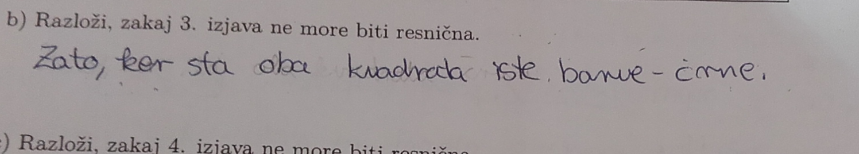 b) Razloži, zakaj 3. izjava ne more biti resnična.
Zato, ker sta oba kvadrata iste barve - črne.
c) Razloži, zakaj 4. izjava ne more biti resnična.